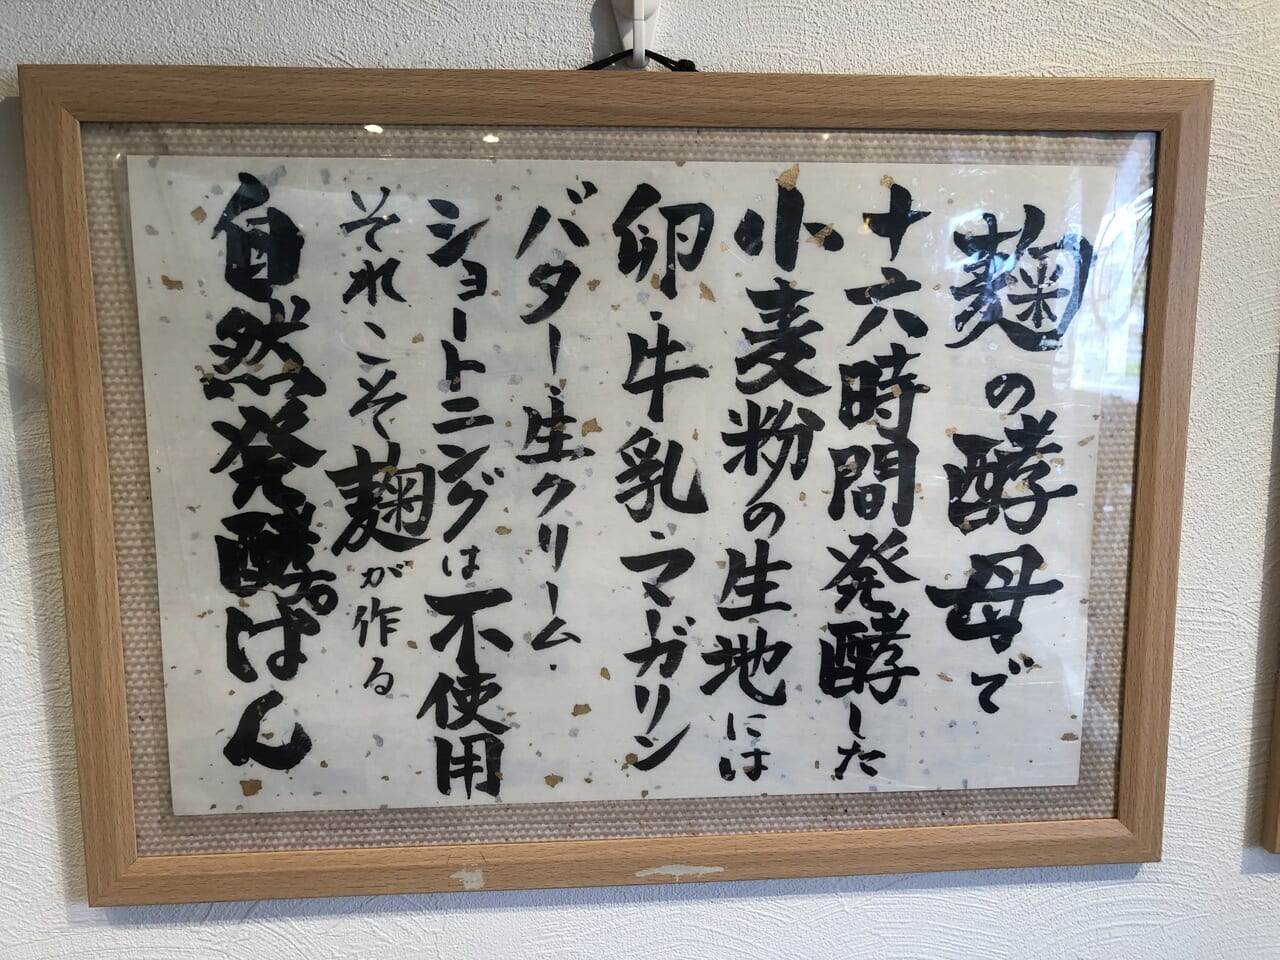 麹の酵母で
十六時間発酵した
小麦粉の生地には
卵・牛乳・マガリン
バター・生クリーム・
ショートニングは不使用
それこそ麹が作る
自然発酵ぱん